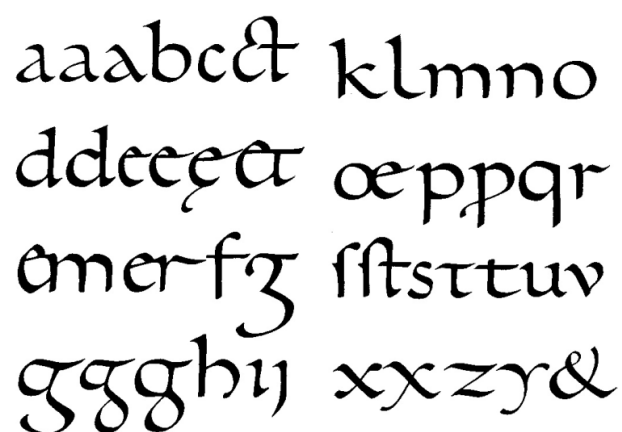 aaabcct
ddeeęet
emerfg
ggghij
klmno
œppqr
ſſtsttuv
xxzy&